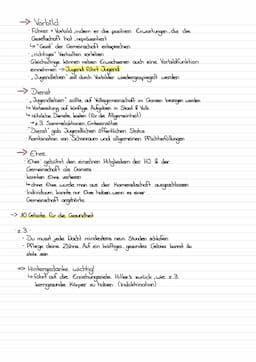 → Vorbild
Führer = Vorbild, indem er die positiven Erwartungen, die die
Gesellschaft hat, repräsentiert
↳ "Geist" der Gemeinschaft entsprechen
„richtiges" Verhalten vorleben
Gleichaltrige können neben Erwachsenen auch eine Vorbildfunktion
einnehmen → Jugend führt Jugend
„Jugendleben" soll durch Vorbilder wiedergespiegelt werden
→ Dienst
„Jugendleben" sollte auf Volksgemeinschaft im Ganzen bezogen werden
↳ Vorbereitung auf künftige Aufgaben in Staat & Volk
↳ nützliche Dienste leisten (für die Allgemeinheit)
→ z.B. Sammelaktionen, Ernteeinsätze
"Dienst" gab Jugendlichen öffentlichen Status
Kombination von Schonraum und allgemeinen Pflichterfüllungen
→ Ehre
Ehre gebührt den einzelnen Mitgliedern der HJ & der
Gemeinschaft als Ganzes
konnten Ehre verlieren
↳ ohne Ehre wurde man aus der Kameradschaft ausgeschlossen
Individuum konnte nur Ehre haben, wenn es einer
Gemeinschaft angehörte
→ 10 Gebote für die Gesundheit
z.B.
· Du musst jede Nacht mindestens neun Stunden schlafen
· Pflege deine Zähne. Auf ein kräftiges, gesundes Gebiss kannst du
stolz sein
=> Hintergedanke wichtig!
↳ führt auf die Erziehungsziele Hitler's zurück, wie z.B.
kerngesunde Körper zu haben (Indoktrination)